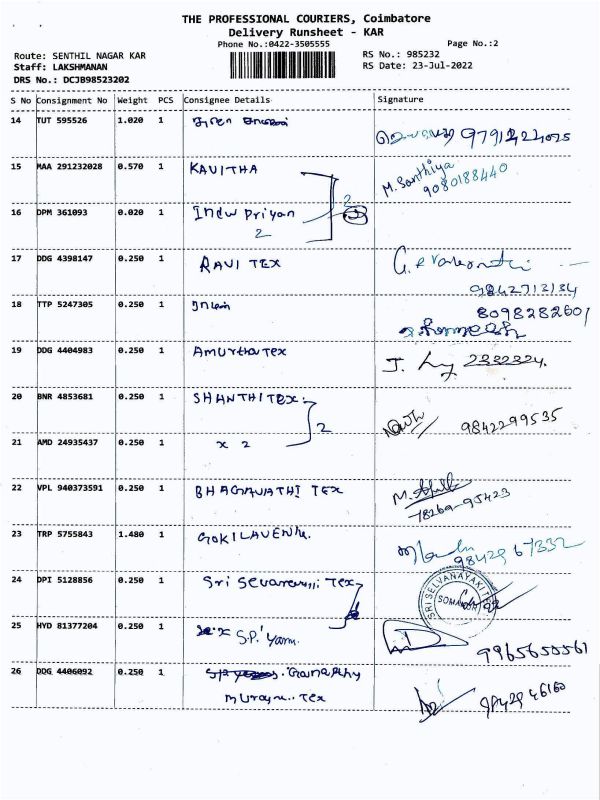 THE PROFESSIONAL COURIERS, Coimbatore
Delivery Runsheet - KAR
Phone No.:0422-3505555 Page No.:2
Route: SENTHIL NAGAR KAR RS No.: 985232
Staff: LAKSHMANAN RS Date: 23-Jul-2022
DRS No.: DCJB98523202
S No Consignment No Weight PCS Consignee Details Signature
14 TUT 595526 1.020 1
15 MAA 291232028 0.570 1 KAVITHA M. Santhiya
9080188440
16 DPM 361093 0.020 1 Indu Priyan 2
2
17 DDG 4398147 0.250 1 RAVI TEX
9842713134
18 TTP 5247305 0.250 1 8098282601
19 DDG 4404983 0.250 1 Amurtha Tex J.
20 BNR 4853681 0.250 1 SHANTHI TEX 9842299535
2
21 AMD 24935437 0.250 1 x 2
22 VPL 940373591 0.250 1 BHAGAVATHI TEX M.
78269-95423
23 TRP 5755843 1.480 1 GOKILAVENI.
98429 67332
24 DPI 5128856 0.250 1 Sri Tex
SRI SELVANAYAKI
25 HYD 81377204 0.250 1 S.P. Yarn 9965655561
26 DDG 4406092 0.250 1 Ganapathy
Tex 98429 46160